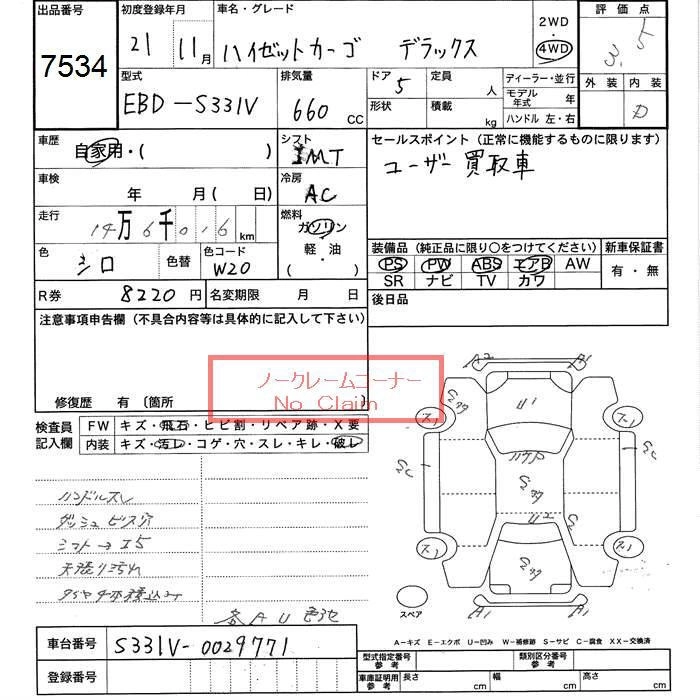 出品番号
7534
初度登録年月
21 11月
車名・グレード
ハイゼットカーゴ デラックス
2WD
・
4WD
評価点
3.5
外装 内装
D
型式
EBD-S331V
排気量
660 CC
ドア
5
定員
人
形状
積載
kg
ディーラー・並行
モデル年式 年
ハンドル 左・右
車歴
自家用・( )
シフト
MT
セールスポイント(正常に機能するものに限ります)
ユーザー買取車
車検
年 月( 日)
冷房
AC
走行
14万6千016km
燃料
ガソリン
軽・油
( )
色
シロ
色替
色コード
W20
装備品(純正品に限り○をつけてください)
新車保証書
PS PW ABS エアB AW
SR ナビ TV カワ
有・無
R券 8220円
名変期限 月 日
後日品
注意事項申告欄(不具合内容等は具体的に記入して下さい)
ノークレームコーナー
No Claim
修復歴 有(箇所 )
検査員
記入欄
FW キズ・飛石・ヒビ割・リペア跡・X要
内装 キズ・汚レ・コゲ・穴・スレ・キレ・破レ
ハンドルスレ
ダッシュビス穴
シフト→I5
天張リ汚れ
各AU色
A2 A1
U1
U2
A1 A1
スペア
A-キズ E-エクボ U-凹み W-補修跡 S-サビ C-腐食 XX-交換済
車台番号
S331V-0029771
登録番号
型式指定番号
参考
類別区分番号
参考
車庫証明用
参考
長さ cm
幅 cm
高さ cm